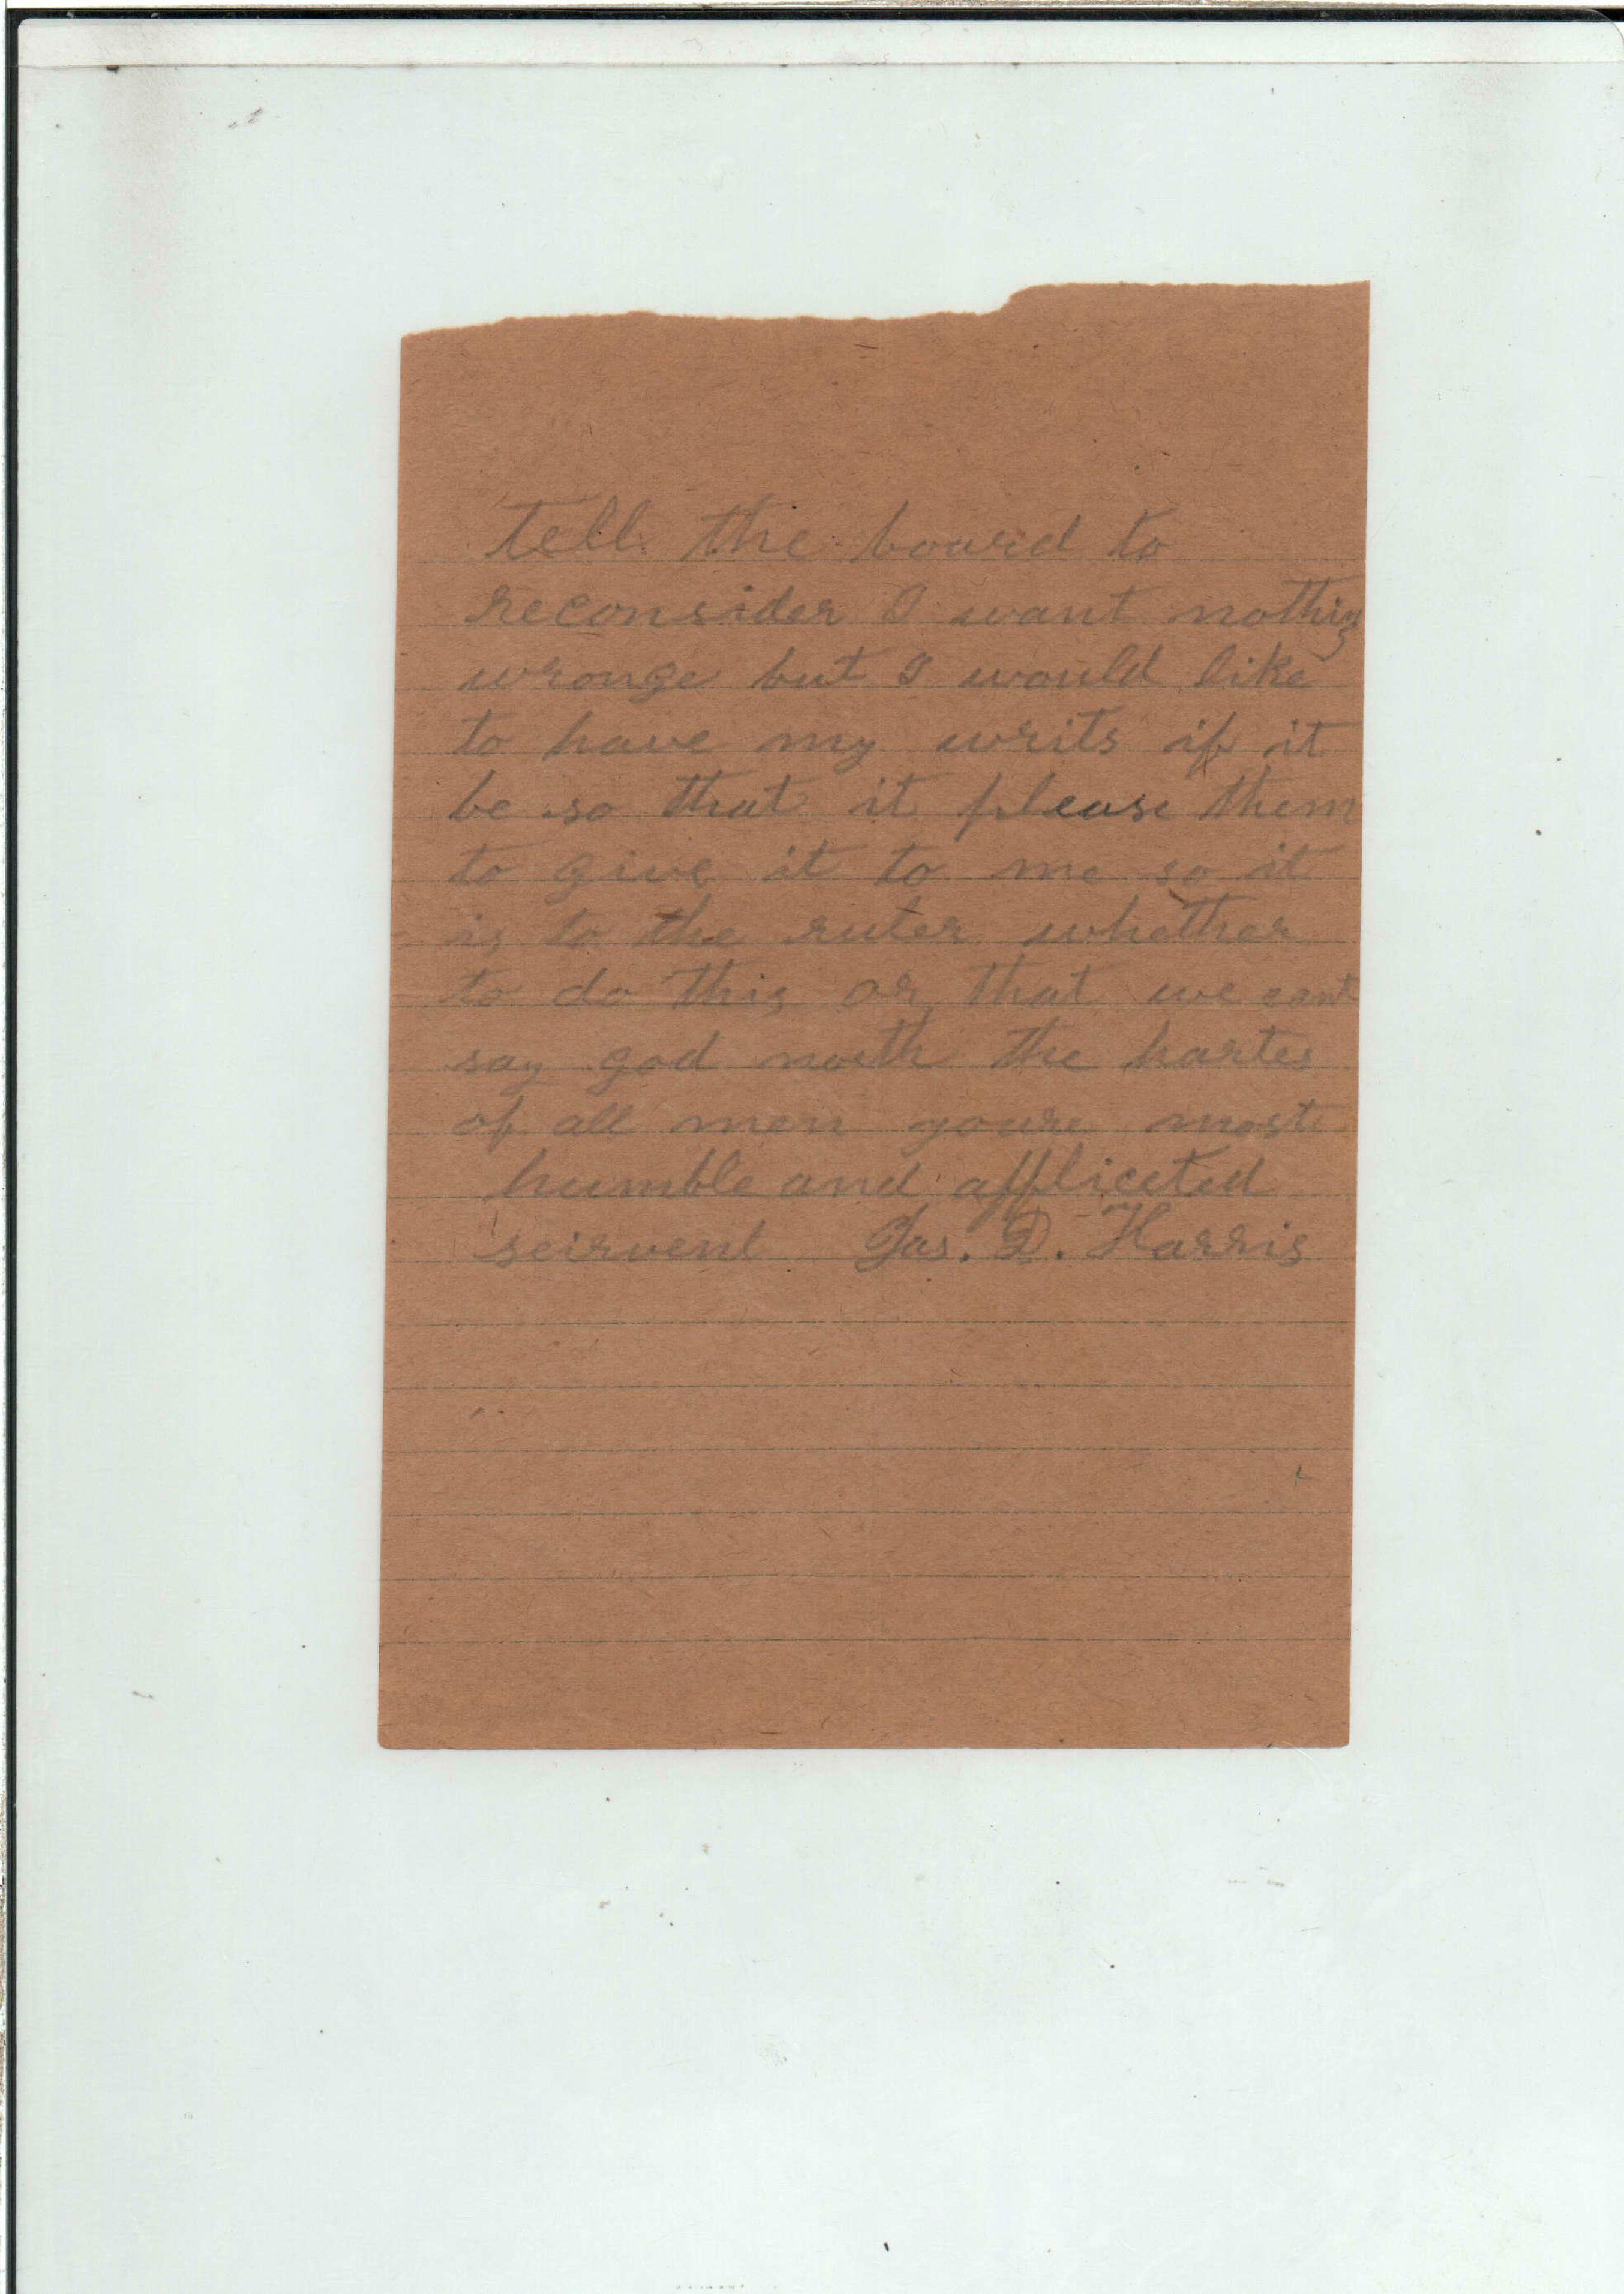 tell the board to
reconsider I want nothig
wronge but I would like
to have my writs if it
be so that it please them
to give it to me so it
is to the ruler whether
to do this or that we cant
say god noeth the hartes
of all men youre most
humble and affliceted
seirvent Jas. D. Harris